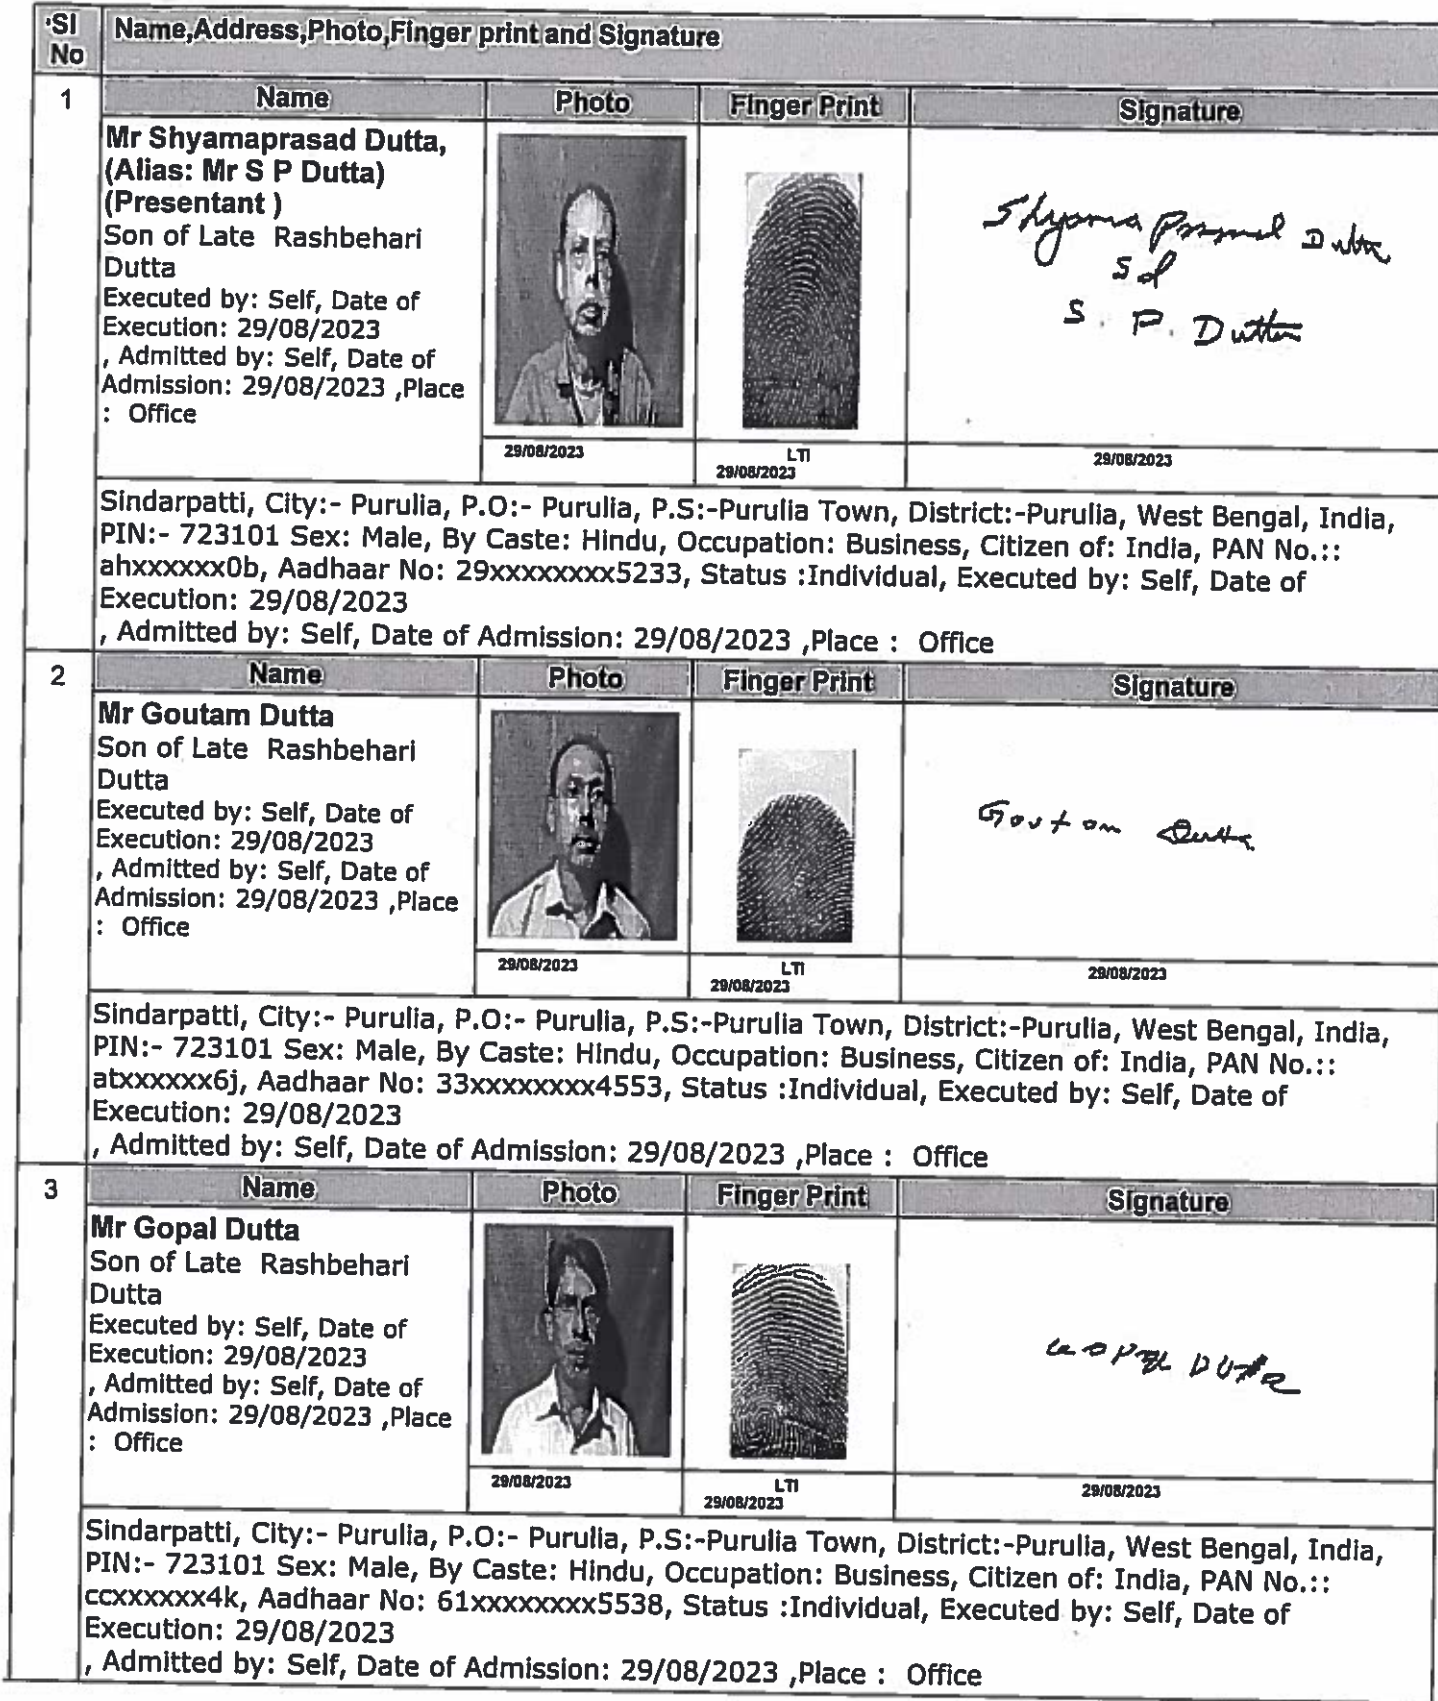 Sl No
Name,Address,Photo,Finger print and Signature
1
Name Photo Finger Print Signature
Mr Shyamaprasad Dutta,
(Alias: Mr S P Dutta)
(Presentant )
Son of Late Rashbehari
Dutta
Executed by: Self, Date of
Execution: 29/08/2023
, Admitted by: Self, Date of
Admission: 29/08/2023 ,Place
: Office
Shyama Prasad Dutta
S. P. Dutta
29/08/2023
LTI
29/08/2023
29/08/2023
Sindarpatti, City:- Purulia, P.O:- Purulia, P.S:-Purulia Town, District:-Purulia, West Bengal, India,
PIN:- 723101 Sex: Male, By Caste: Hindu, Occupation: Business, Citizen of: India, PAN No.::
ahxxxxxx0b, Aadhaar No: 29xxxxxxxx5233, Status :Individual, Executed by: Self, Date of
Execution: 29/08/2023
, Admitted by: Self, Date of Admission: 29/08/2023 ,Place : Office
2
Name Photo Finger Print Signature
Mr Goutam Dutta
Son of Late Rashbehari
Dutta
Executed by: Self, Date of
Execution: 29/08/2023
, Admitted by: Self, Date of
Admission: 29/08/2023 ,Place
: Office
Goutam Dutta
29/08/2023
LTI
29/08/2023
29/08/2023
Sindarpatti, City:- Purulia, P.O:- Purulia, P.S:-Purulia Town, District:-Purulia, West Bengal, India,
PIN:- 723101 Sex: Male, By Caste: Hindu, Occupation: Business, Citizen of: India, PAN No.::
atxxxxxx6j, Aadhaar No: 33xxxxxxxx4553, Status :Individual, Executed by: Self, Date of
Execution: 29/08/2023
, Admitted by: Self, Date of Admission: 29/08/2023 ,Place : Office
3
Name Photo Finger Print Signature
Mr Gopal Dutta
Son of Late Rashbehari
Dutta
Executed by: Self, Date of
Execution: 29/08/2023
, Admitted by: Self, Date of
Admission: 29/08/2023 ,Place
: Office
GOPAL DUTTA
29/08/2023
LTI
29/08/2023
29/08/2023
Sindarpatti, City:- Purulia, P.O:- Purulia, P.S:-Purulia Town, District:-Purulia, West Bengal, India,
PIN:- 723101 Sex: Male, By Caste: Hindu, Occupation: Business, Citizen of: India, PAN No.::
ccxxxxxx4k, Aadhaar No: 61xxxxxxxx5538, Status :Individual, Executed by: Self, Date of
Execution: 29/08/2023
, Admitted by: Self, Date of Admission: 29/08/2023 ,Place : Office